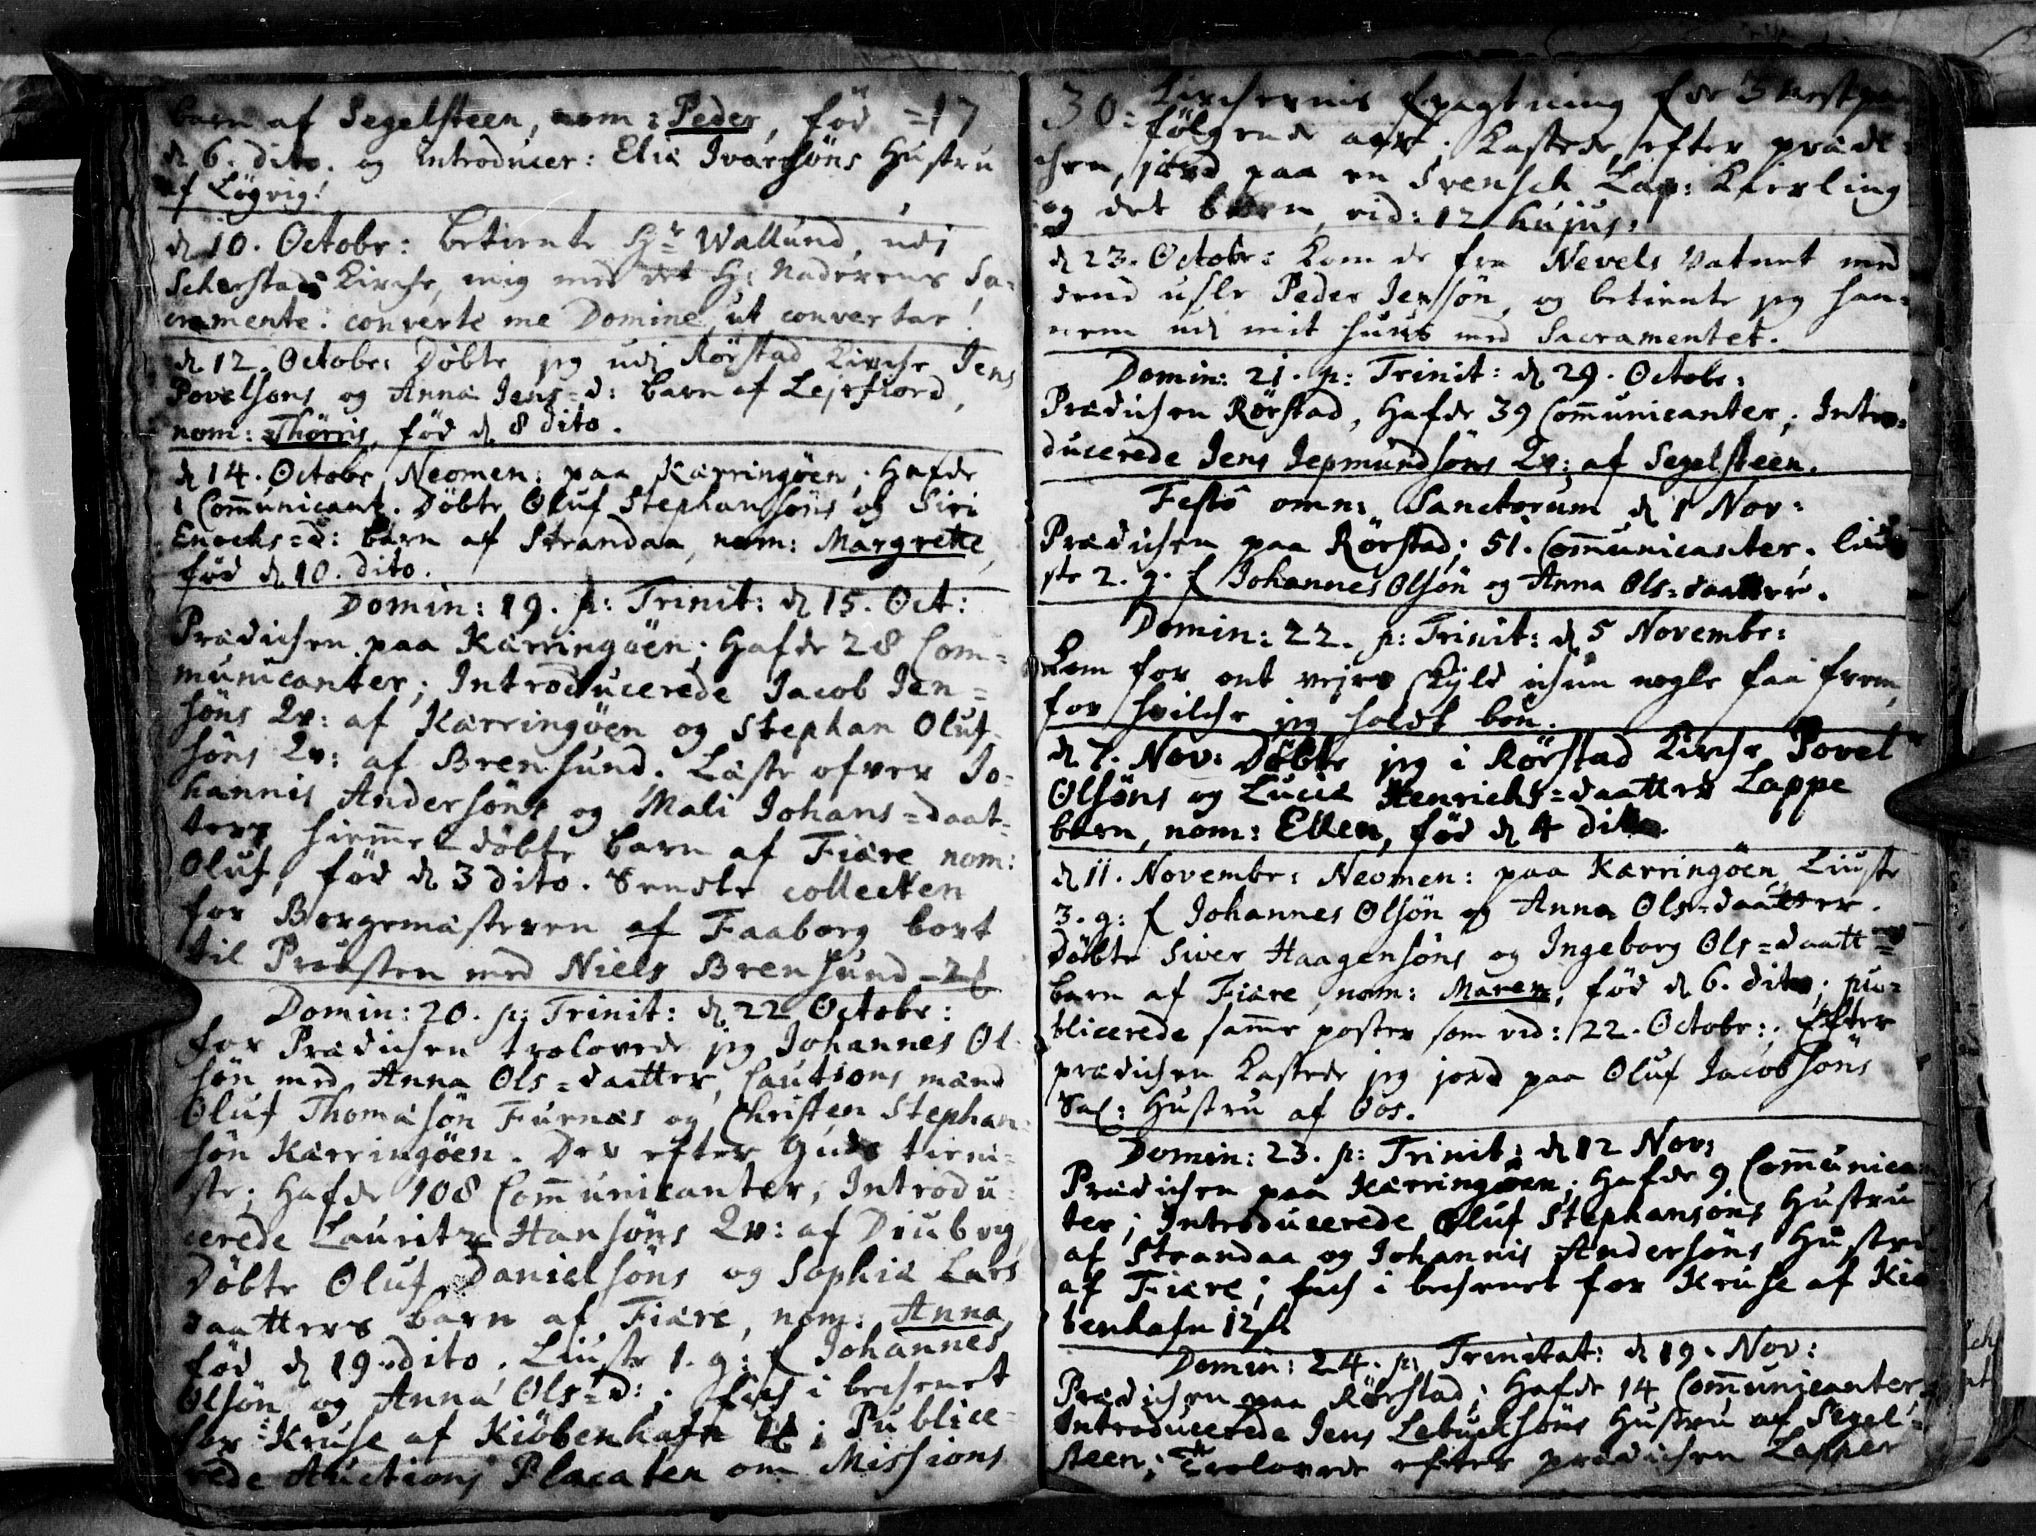 barn af Segelsteen, nom: Peder, fød =17
d 6. dito. og Introducer: Eliæ Ivarsøns Hustru
af Løgvig!
d 10. Octobr: betiente Hr Wallund, udi
Schierstad Kirche, mig med det H: Naderens Sa=
cramente: converte me Domine, ut convertar!
d 12. Octobr: Døbte jeg udi Rørstad Kirche Jens
Povelsøns og Anna Jens=d: barn af Lejrfiord,
nom: Thørris, fød d 8 dito.
d 14. Octobr Neomen: paa Kærringøen; Hafde
1 Com̅unicant. Døbte Oluf Stephansøns og Siri
Enochs=d: barn af Strandaa, nom: Margrette,
fød d 10. dito.
Domin: 19. p: Trinit: d 15. Oct:
Prædichen paa Kærringøen; Hafde 28 Com=
municanter; Introducerede Jacob Jen=
søns Qv: af Kærringøen og Stephan Oluf=
søns Qv: af Brensund. Læste ofver Jo=
hannis Andersøns og Mali Johans=daat=
ters hiem̅e døbte barn af Fiære nom:
Oluf, fød d 3 dito. Sendte collecten
for Borgemesteren af Faaborg bort
til Provsten med Niels Brensund
Domin: 20. p: Trinit: d 22 Octobr:
for Prædichen trolovede jeg Johannes Ol=
søn med Anna Ols=daatter, Cautions mænd
Oluf Thomasøn Furnæs og Christen Stephan=
søn Kærringøen. Der efter Guds tieni=
ste; Hafde 108 Com̅unicanter; Introdu=
cerede Lauritz Hansøns Qv: af Diubvig
Døbte Oluf Danielsøns og Sophiæ Lars
daatters barn af Fiære, nom: Anna,
fød d 19. dito. Liuste 1. g: f Johannes
Olsøn og Anna Ols=d:; fich i bechenet
for Kruse af Kiøbenhafn; Publice=
rede Auctions Placaten om Missions
30: Kirchernis forpagtning for 3 nest paa
følgende aar; Kastede, efter prædi=
chen, jord paa en Svensch Lap: Kierling
og det barn, vid: 12 hujus.
d 23. Octobr: Kom de fra Nevels Vatnet med
dend usle Peder Jensøn, og betiente jeg han=
nem udi mit huus med Sacramentet.
Domin: 21. p: Trinit: d 29. Octobr:
Prædichen Rørstad, Hafde 39 Com̅unicanter; Intro=
ducerede Jens Jepmundsøns Qv: af Segelsteen.
Festo omn: Sanctorum d 1 Nov:
Prædichen paa Rørstad; 51. Com̅unicanter. Liu
ste 2. g. f Johannes Olsøn og Anna Ols=daatter.
Domin: 22. p: Trinit: d 5 Novembr:
Kom for ont vejrs skyld ichun nogle faa frem,
for hvilche jeg holdt bøn.
d 7. Nov: Døbte jeg i Rørstad Kirche Povel
Olsøns og Luciæ Henrichs=daatters Lappe
barn, nom: Ellen, fød d 4 dito.
d 11. Novembr: Neomen: paa Kærringøen Liuste
3. g: f Johannes Olsøn og Anna Ols=daatter.
Døbte Siver Haagensøns og Ingeborg Ols=daatt=
barn af Fiære nom: Maren, fød d 6. dito; pu=
blicerede sam̅e poster som vid: 22. Octobr:; Efter
prædichen Kastede jeg jord paa Oluf Jacobsøns
Sal: Hustru af Oos.
Domin: 23. p: Trinit: d 12 Nov:
Prædichen paa Kærringøen; Hafde 9 Com̅unican
ter; Introducerede Oluf Stephansøns Hustru
af Strandaa og Johannis Andersøns Hustru
af Fiære; fich i bechenet for Kruse af Kiø
benhafn 12 s
Domin: 24. p: Trinitat: d 19. Nov:
Prædichen paa Rørstad; Hafde 14 Com̅unicanter
Introducerede Jens Lebuchsøns Hustru af Segel=
steen; Trolovede efter prædichen Lapper